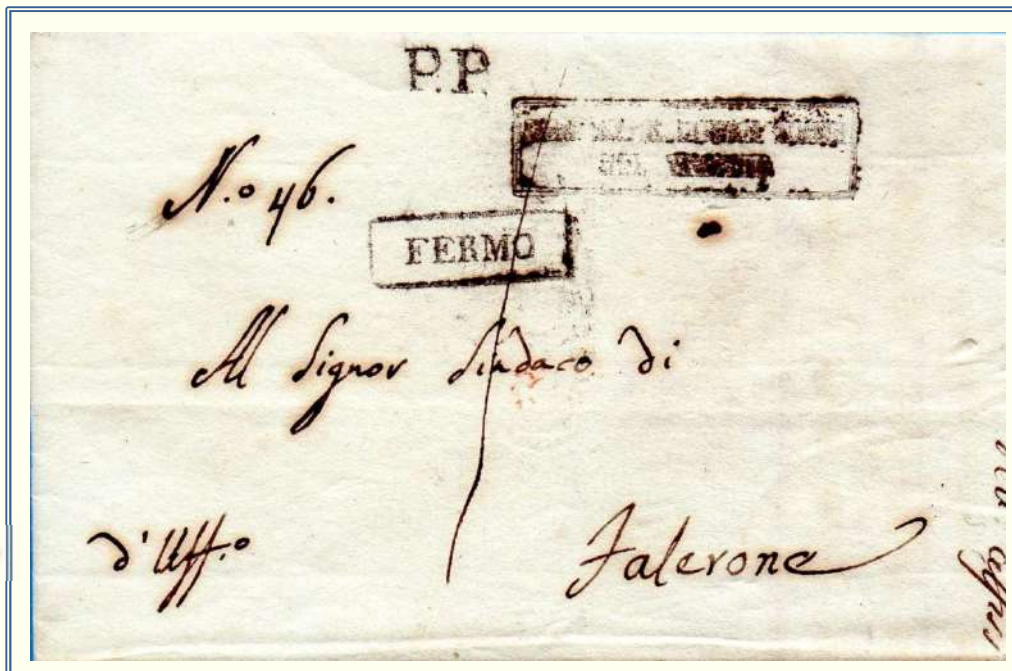 P.P.
N.o 46.
FERMO
Al Signor Sindaco di
d'Uff.o
Falerone